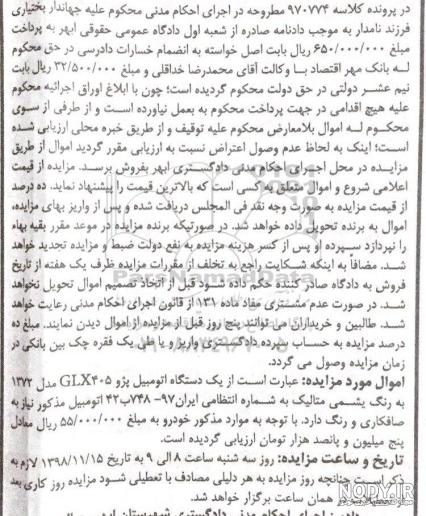 در پرونده کلاسه ۹۷۰۷۷۴ مطروحه در اجرای احکام مدنی محکوم علیه جهاندار بختیاری
فرزند نامدار به موجب دادنامه صادره از شعبه اول دادگاه عمومی حقوقی ابهر به پرداخت
مبلغ ۶۵۰/۰۰۰/۰۰۰ ریال بابت اصل خواسته به انضمام خسارات دادرسی در حق محکوم
له بانک مهر اقتصاد با وکالت آقای محمدرضا خداقلی و مبلغ ۳۲/۵۰۰/۰۰۰ ریال بابت
نیم عشر دولتی در حق دولت محکوم گردیده است؛ چون با ابلاغ اوراق اجرائیه محکوم
علیه هیچ اقدامی در جهت پرداخت محکوم به بعمل نیاورده است و از طرفی از سوی
محکوم له اموال بلامعارض محکوم علیه توقیف و از طریق خبره محلی ارزیابی شده
است؛ اینک به لحاظ عدم وصول اعتراض نسبت به ارزیابی مقرر گردید اموال از طریق
مزایده در محل اجرای احکام مدنی دادگستری ابهر بفروش برسد. مزایده از قیمت
اعلامی شروع و اموال متعلق به کسی است که بالاترین قیمت را پیشنهاد نماید. ده درصد
از قیمت مزایده به صورت وجه نقد فی المجلس دریافت شده و پس از واریز بهای مزایده،
اموال به برنده تحویل داده خواهد شد. در صورتیکه برنده مزایده در موعد مقرر بقیه بهاء
را نپردازد سپرده او پس از کسر هزینه مزایده به نفع دولت ضبط و مزایده تجدید خواهد
شد. مضافاً به اینکه شکایت راجع به تخلف از مقررات مزایده ظرف یک هفته از تاریخ
فروش به دادگاه صادر کننده حکم داده شود قبل از اتخاذ تصمیم اموال تحویل نخواهد
شد. در صورت عدم مشتری مفاد ماده ۱۳۱ از قانون اجرای احکام مدنی رعایت خواهد
شد. طالبین و خریداران می توانند پنج روز قبل از مزایده از اموال دیدن نمایند. مبلغ ده
درصد مزایده به حساب سپرده دادگستری واریز و یا طی یک فقره چک بین بانکی در
زمان مزایده وصول می گردد.
اموال مورد مزایده: عبارت است از یک دستگاه اتومبیل پژو GLX۴۰۵ مدل ۱۳۷۲
به رنگ یشمی متالیک به شماره انتظامی ایران۹۷- ۷۴۸ب۴۲ اتومبیل مذکور نیاز به
صافکاری و رنگ دارد. با توجه به موارد مذکور خودرو به مبلغ ۵۵/۰۰۰/۰۰۰ ریال معادل
پنج میلیون و پانصد هزار تومان ارزیابی گردیده است.
تاریخ و ساعت مزایده: روز سه شنبه ساعت ۸ الی ۹ به تاریخ ۱۳۹۸/۱۱/۱۵ لازم به
ذکر است چنانچه روز مزایده به هر دلیلی مصادف با تعطیلی شود مزایده روز کاری بعد
در همان ساعت برگزار خواهد شد.
اجرای احکام مدنی دادگستری شهرستان ابهر
ParsNamadData
NODY.IR